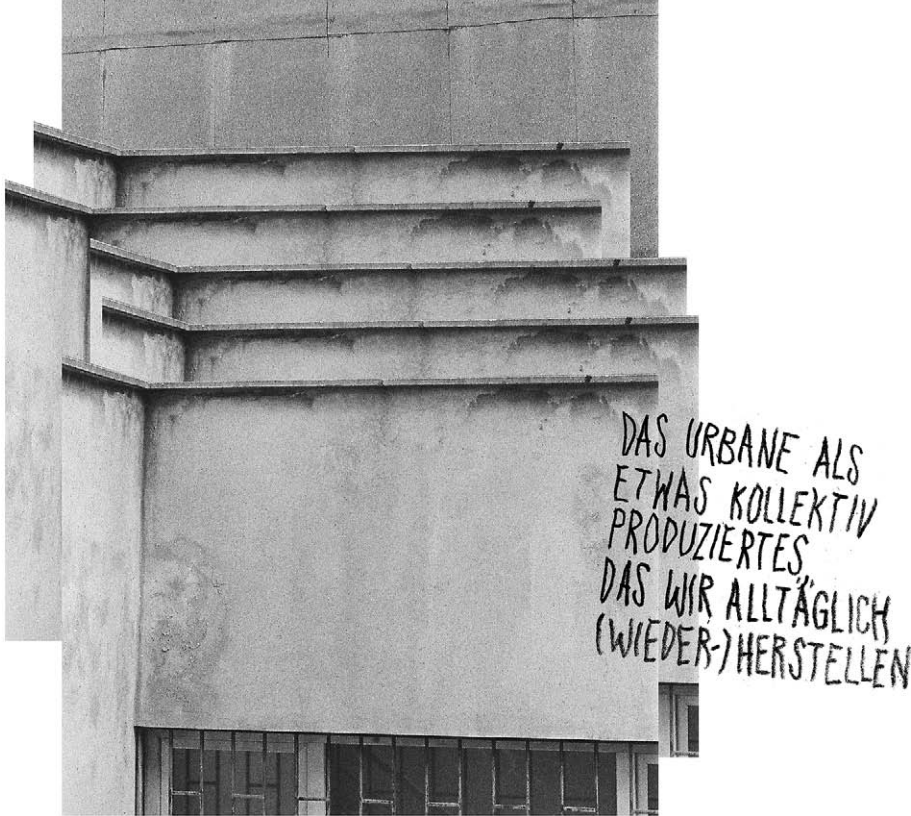 DAS URBANE ALS
ETWAS KOLLEKTIV
PRODUZIERTES,
DAS WIR ALLTÄGLICH
(WIEDER-)HERSTELLEN